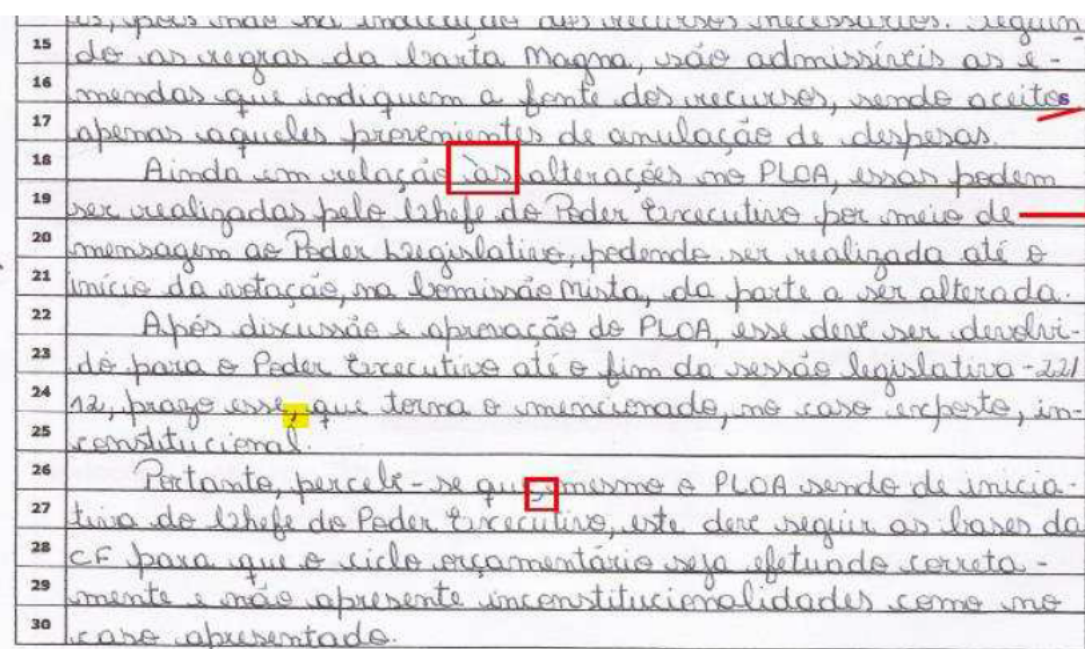 os, pois não há indicação dos recursos necessários. Seguin-
15 do as regras da Carta Magna, são admissíveis as e-
16 mendas que indiquem a fonte dos recursos, sendo aceitos
17 apenas aqueles provenientes de anulação de despesas.
18 Ainda em relação às alterações no PLOA, essas podem
19 ser realizadas pelo Chefe do Poder Executivo por meio de
20 mensagem ao Poder Legislativo, podendo ser realizada até o
21 início da votação, na Comissão Mista, da parte a ser alterada.
22 Após discussão e aprovação do PLOA, esse deve ser devolvi-
23 do para o Poder Executivo até o fim da sessão legislativa - 22/
24 12, prazo esse, que torna o mencionado, no caso exposto, in-
25 constitucional.
26 Portanto, percebe-se que, mesmo o PLOA sendo de inicia-
27 tiva do Chefe do Poder Executivo, este deve seguir as bases da
28 CF para que o ciclo orçamentário seja efetuado correta-
29 mente e não apresente inconstitucionalidades como no
30 caso apresentado.